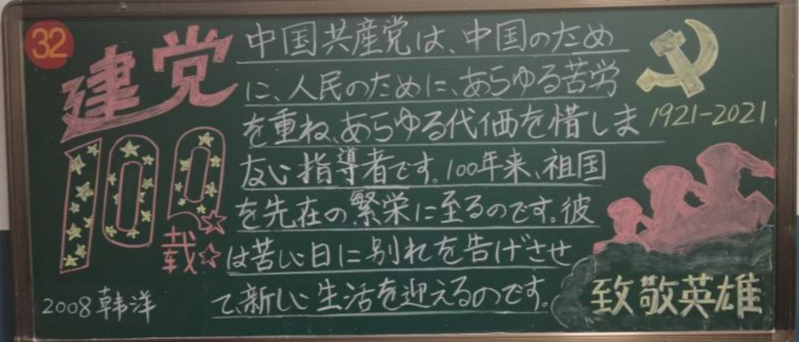 32
建党
100
载
中国共産党は、中国のため
に、人民のために、あらゆる苦労
を重ね、あらゆる代価を惜しま
ない指導者です。100年来、祖国
を先在の繁栄に至るのです。彼
は苦しい日に別れを告げさせ
て、新しい生活を迎えるのです。
1921-2021
致敬英雄
2008韩洋